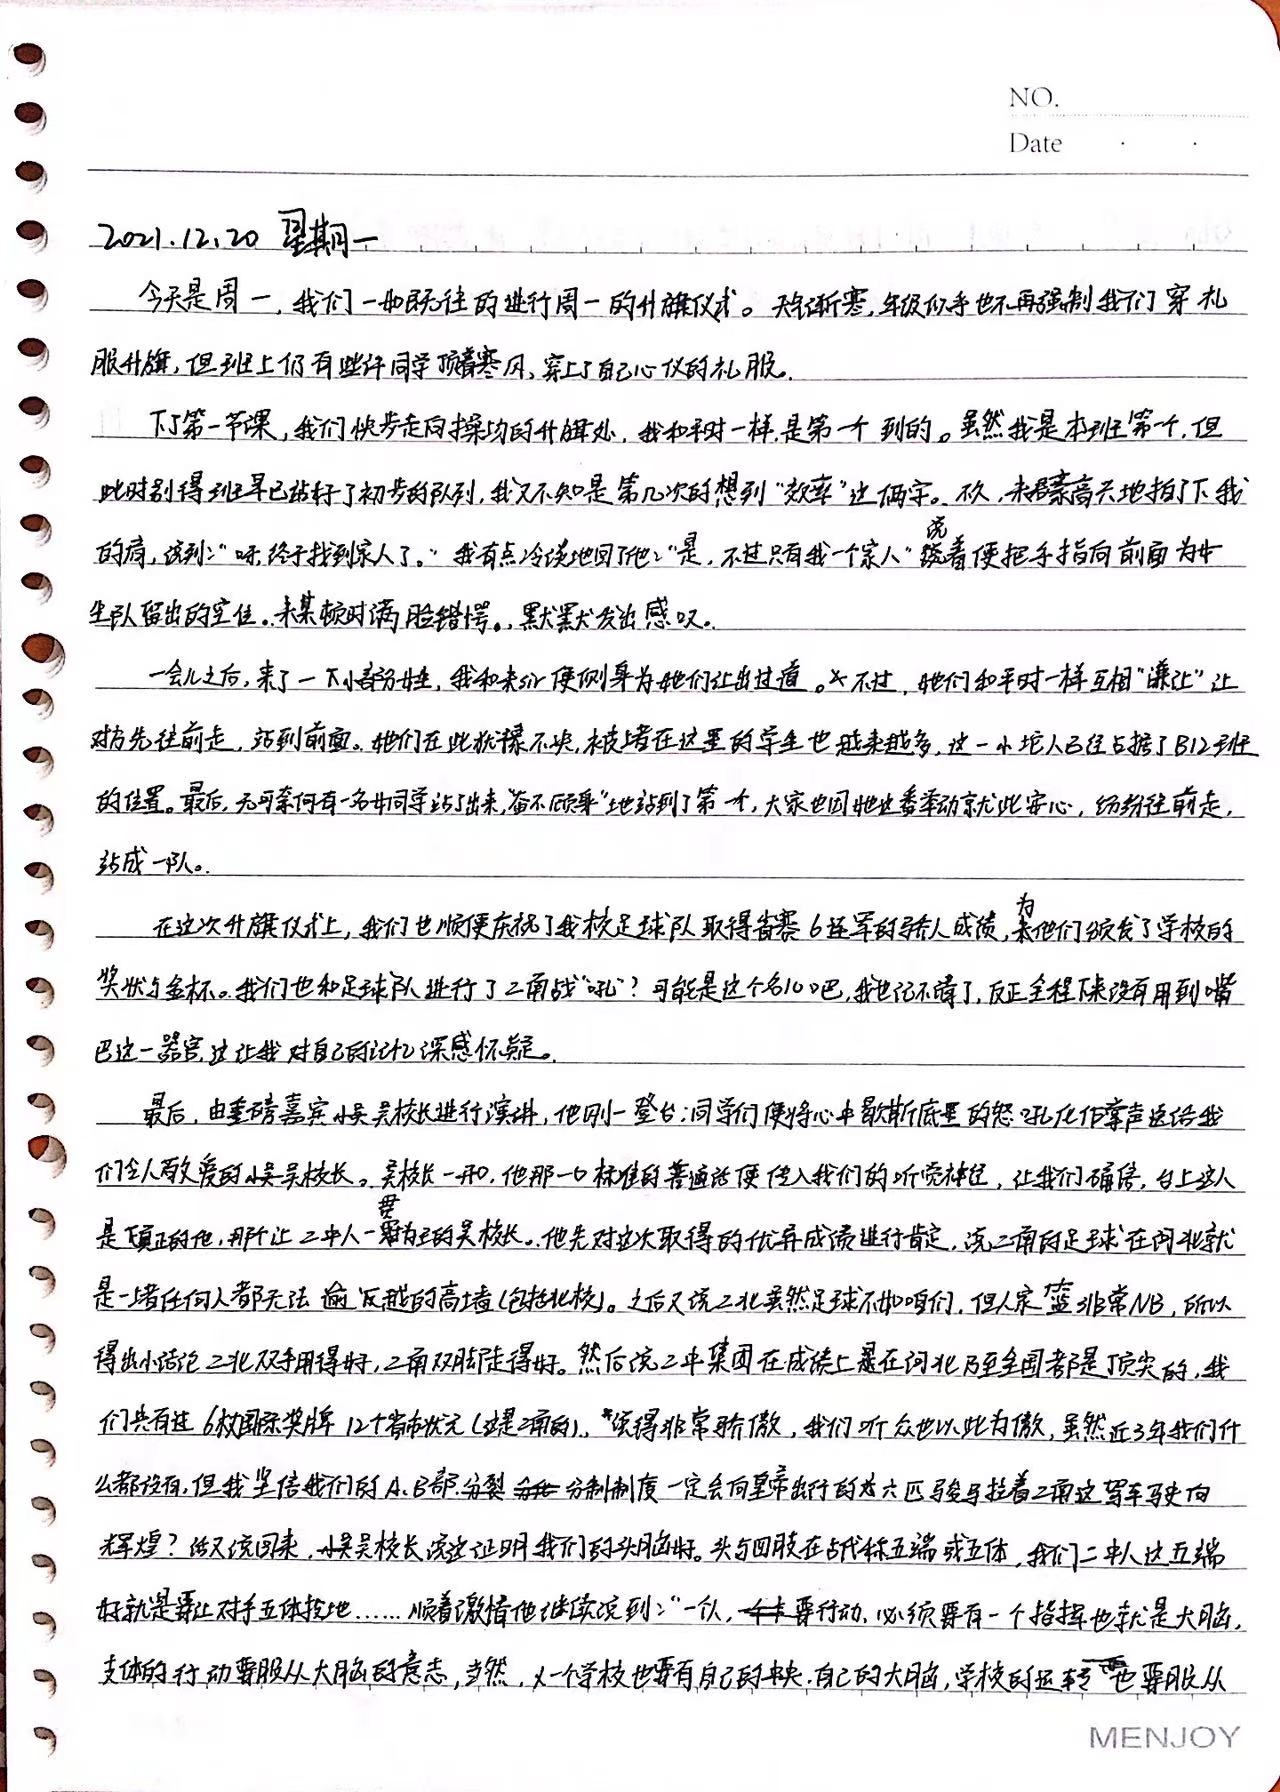 NO.
Date
2021.12.20 星期一
今天是周一,我们一如既往的进行周一的升旗仪式。天气渐寒,年级似乎也不再强制我们穿礼
服升旗,但班上仍有些许同学顶着寒风,穿上了自己心仪的礼服。
下了第一节课,我们快步走向操场的升旗处,我和平时一样是第一个到的。虽然我是本班第一个,但
此时别得班早已站好了初步的队列,我又不知是第几次的想到“效率”这俩字。不久,未某豪高兴地拍了下我
的肩,说到:“呀,终于找到家人了。”我有点冷淡地回了他:“是,不过只有我一个家人”说着便把手指向前面为女
生队留出的空位。未某顿时满脸错愕。,默默发出感叹。
一会儿之后,来了一下小部分女生,我和未某便侧身为她们让出过道。不过,她们和平时一样互相“谦让”让
对方先往前走,站到前面。她们在此犹豫不决,被堵在这里的学生也越来越多,这一小坨人已经占据了B12班
的位置。最后,无可奈何有一名女同学站了出来,“奋不顾身”地站到了第一个,大家也因她这番举动就此安心,纷纷往前走,
站成一队。
在这次升旗仪式上,我们也顺便庆祝了我校足球队取得省赛6连冠的骄人成绩,为他们颁发了学校的
奖状与金杯。我们也和足球队进行了二南战“吼”?可能是这个名儿吧,我也记不清了,反正全程下来没有用到嘴
巴这一器官,这让我对自己的记忆深感怀疑。
最后,由重磅嘉宾小吴吴校长进行演讲,他刚一登台:同学们便将心中歇斯底里的怒吼化作掌声送给我
们令人敬爱的小吴吴校长。吴校长一开口,他那一口标准的普通话便传入我们的听觉神经,让我们确信,台上这人
是真正的他,那个让二中人一贯为主的吴校长。他先对这次取得的优异成绩进行肯定,说二南的足球在河北就
是一堵任何人都无法逾越的高墙(包括北校)。之后又说二北虽然足球不如咱们,但人家篮非常NB,所以
得出小结论二北双手用得好,二南双脚走得好。然后说二中集团在成绩上是在河北乃至全国都是顶尖的,我
们共有过6枚国际奖牌12个省市状元(这是二南的),说得非常骄傲,我们听众也以此为傲,虽然近3年我们什
么都没有,但我坚信我们的A、B部分裂分制制度一定会向皇帝出行的六匹骏马拉着二南这驾车驶向
辉煌?话又说回来,小吴吴校长说这证明我们的头脑好。头与四肢在古代称五端或五体,我们二中人这五端
好就是要让对手五体投地……顺着激情他继续说到:“一个人,要行动,必须要有一个指挥也就是大脑,
支体的行动要服从大脑的意志,当然,一个学校也要有自己的中央,自己的大脑,学校的运转也要服从
MENJOY